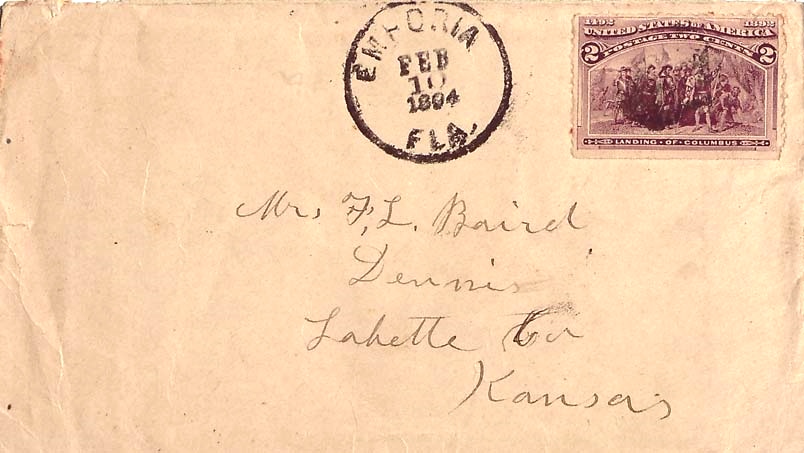 EMPORIA
FEB
10
1894
FLA.
1492 1892
UNITED STATES OF AMERICA
2 POSTAGE TWO CENTS 2
LANDING · OF · COLUMBUS
Mrs F. L. Baird
Dennis
Labette Co
Kansas